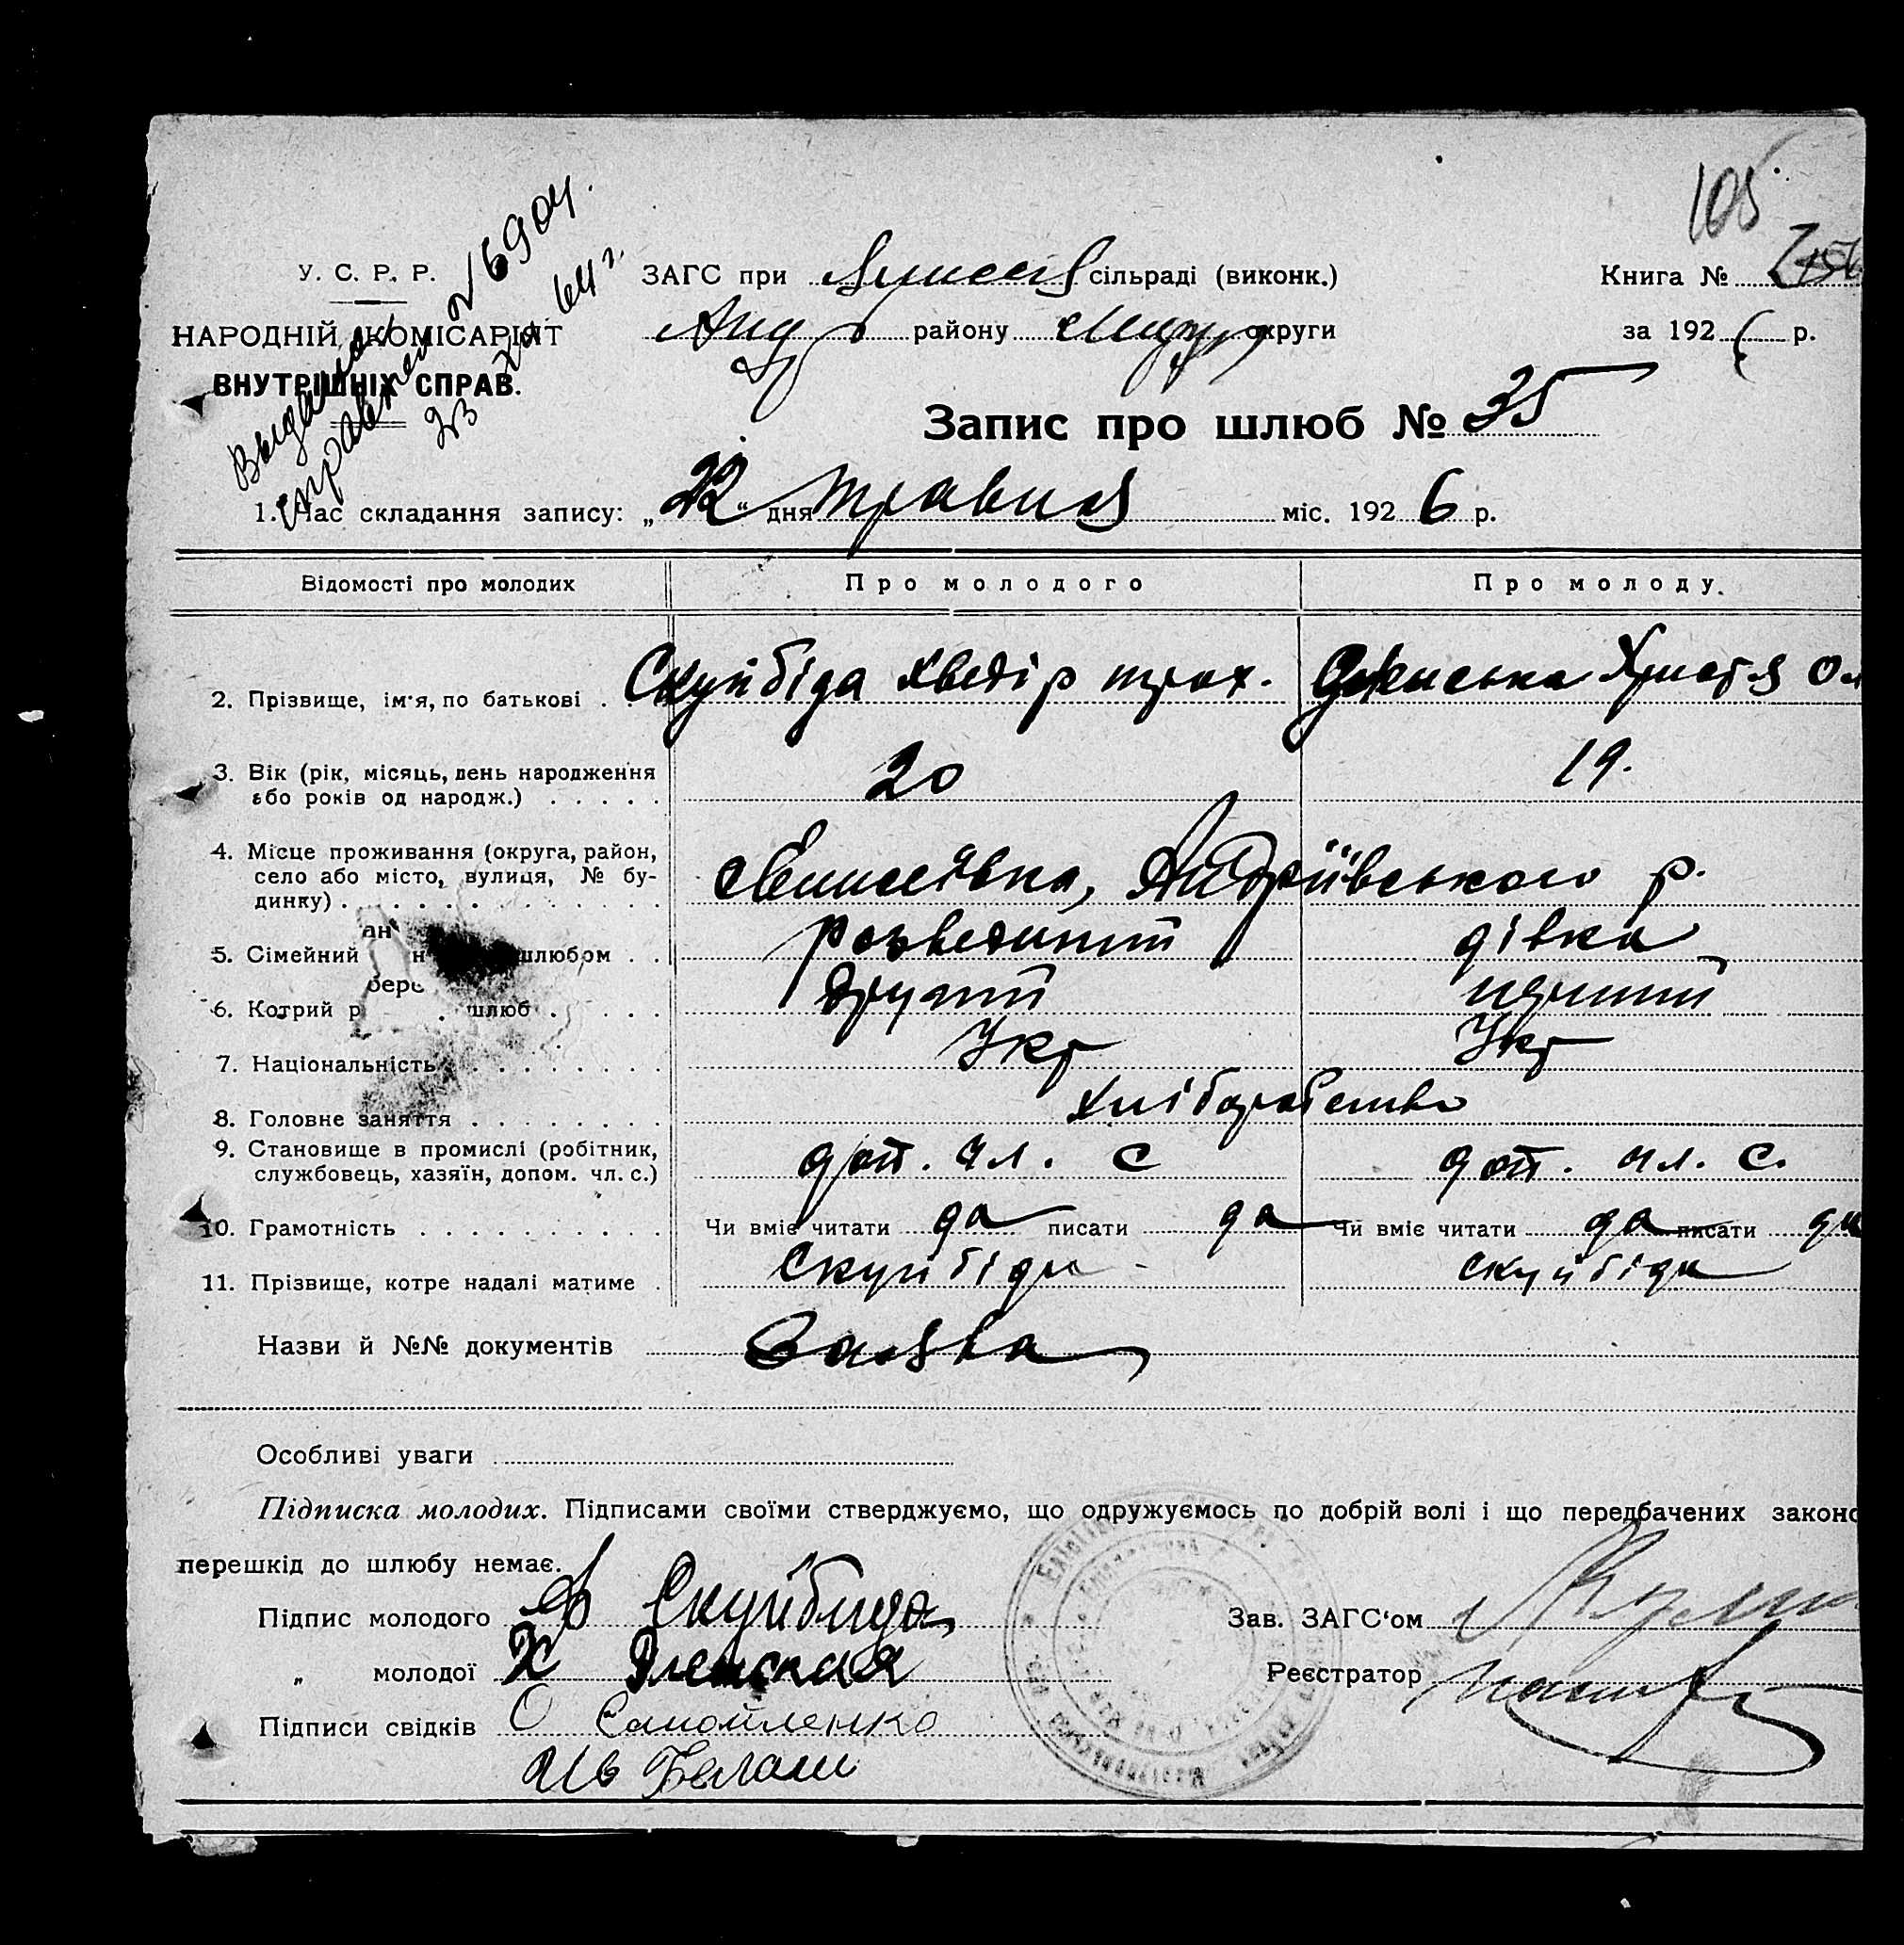 105
У. С. Р. Р.
НАРОДНІЙ КОМІСАРІЯТ
ВНУТРІШНІХ СПРАВ.
Выдана
справка №6904.
23 64 г.
ЗАГС при сільраді (виконк.)
Книга №
Анд району округи
за 1926 р.
Запис про шлюб № 35
1. Час складання запису: „22“ дня травня міс. 1926 р.
Відомості про молодих Про молодого Про молоду.
2. Прізвище, ім'я, по батькові . . Скуйбіда Хведір трох. Христя
3. Вік (рік, місяць, день народження 20 19.
або років од народж.) . . . . .
4. Місце проживання (округа, район,
село або місто, вулиця, № бу-
динку) . . . . . . . . . . . . Андріївського р.
5. Сімейний шлюбом . . розведений дівка
6. Котрий шлюб . . . . . другий перший
7. Національність . . . . . . . . Укр Укр
8. Головне заняття . . . . . . . хліборобство
9. Становище в промислі (робітник,
службовець, хазяїн, допом. чл. с.) доп. чл. с доп. чл. с.
10. Грамотність . . . . . . . . . . Чи вміє читати да писати да Чи вміє читати да писати да
11. Прізвище, котре надалі матиме . Скуйбіда Скуйбіда
Назви й №№ документів Заява
Особливі уваги
Підписка молодих. Підписами своїми стверджуємо, що одружуємось по добрій волі і що передбачених законо
перешкід до шлюбу немає.
Підпис молодого Скуйбида
Зав. ЗАГС‘ом
„ молодої Х
Реєстратор
Підписи свідків О Самойленко
Ив Белаш